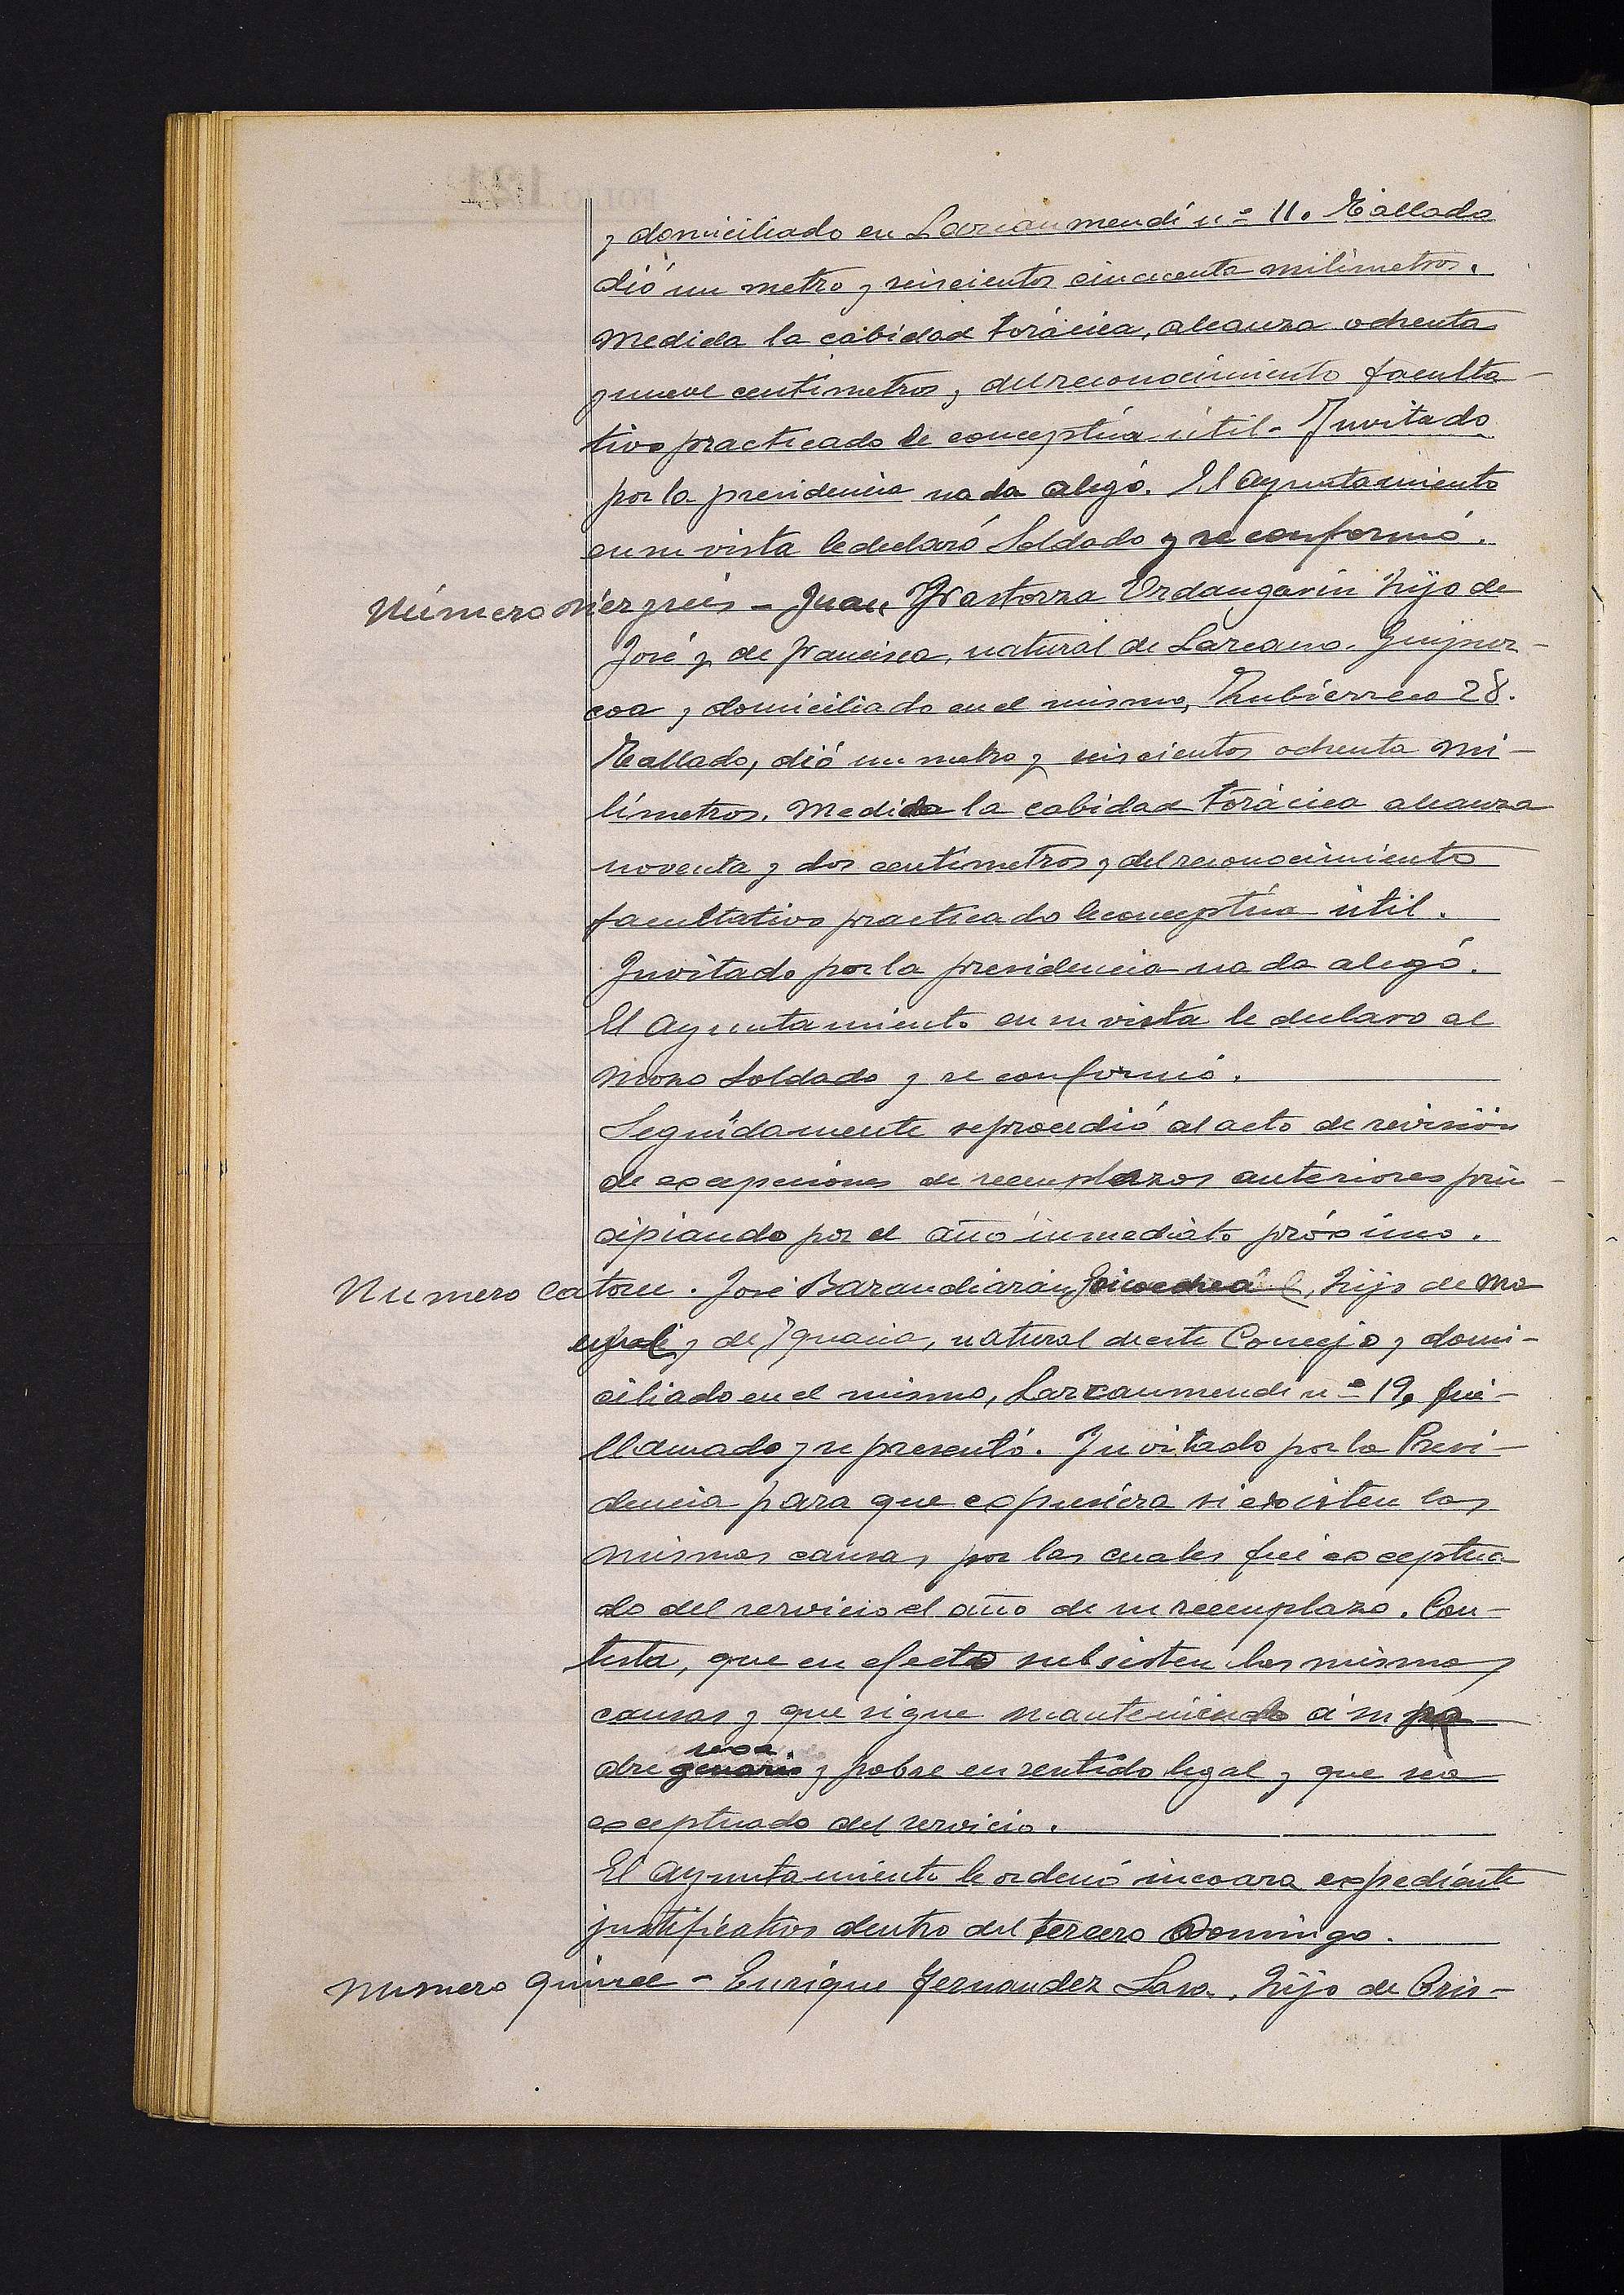 y domiciliado en Lazcaumendi nº 11. Tallado
dió un metro y seiscientos cincuenta milimetros.
Medida la cabidad torácica, alcanza ochenta
y nueve centimetros, del reconocimiento faculta-
tivo practicado le conceptúa útil. Invitado
por la presidencia nada alegó. El Ayuntamiento
en su vista le declaró Soldado y se conformó.
Número diez y seis - Juan Yrastorza Urdangarin hijo de
José y de Francisca, natural de Lazcano. Guipuz-
coa y domiciliado en el mismo, Zubierreca 28.
Tallado, dió un metro y seiscientos ochenta mi-
límetros. Medida la cabidad torácica alcanza
noventa y dos centímetros y del reconocimiento
facultativo practicado le conceptúa útil.
Invitado por la presidencia nada alegó.
El Ayuntamiento en su vista le declaro al
mozo Soldado y se conformó.
Seguídamente se procedió al acto de revisión
de excepciones de reemplazos anteriores prin-
cipiando por el año inmediato próximo.
Numero catorce. José Barandiarán, hijo de Ma
y de Ignacia, natural de este Concejo y domi-
ciliado en el mismo, Lazcaumendi nº 19, fué-
llamado y se presentó. Invitado por la Presi-
dencia para que expusiera si existen las
mismas causas por las cuales fué exceptua
do del servicio el año de su reemplazo. Con-
testa, que en efecto subsisten las mismas
causas y que sigue manteniendo á su pa
dre sexagenario y pobre en sentido legal y que sea
exceptuado del servicio.
El Ayuntamiento le ordenó incoara expediente
justificativo dentro del tercero Domingo.
Numero quince - Enrique Fernandez Laso. hijo de Cris-